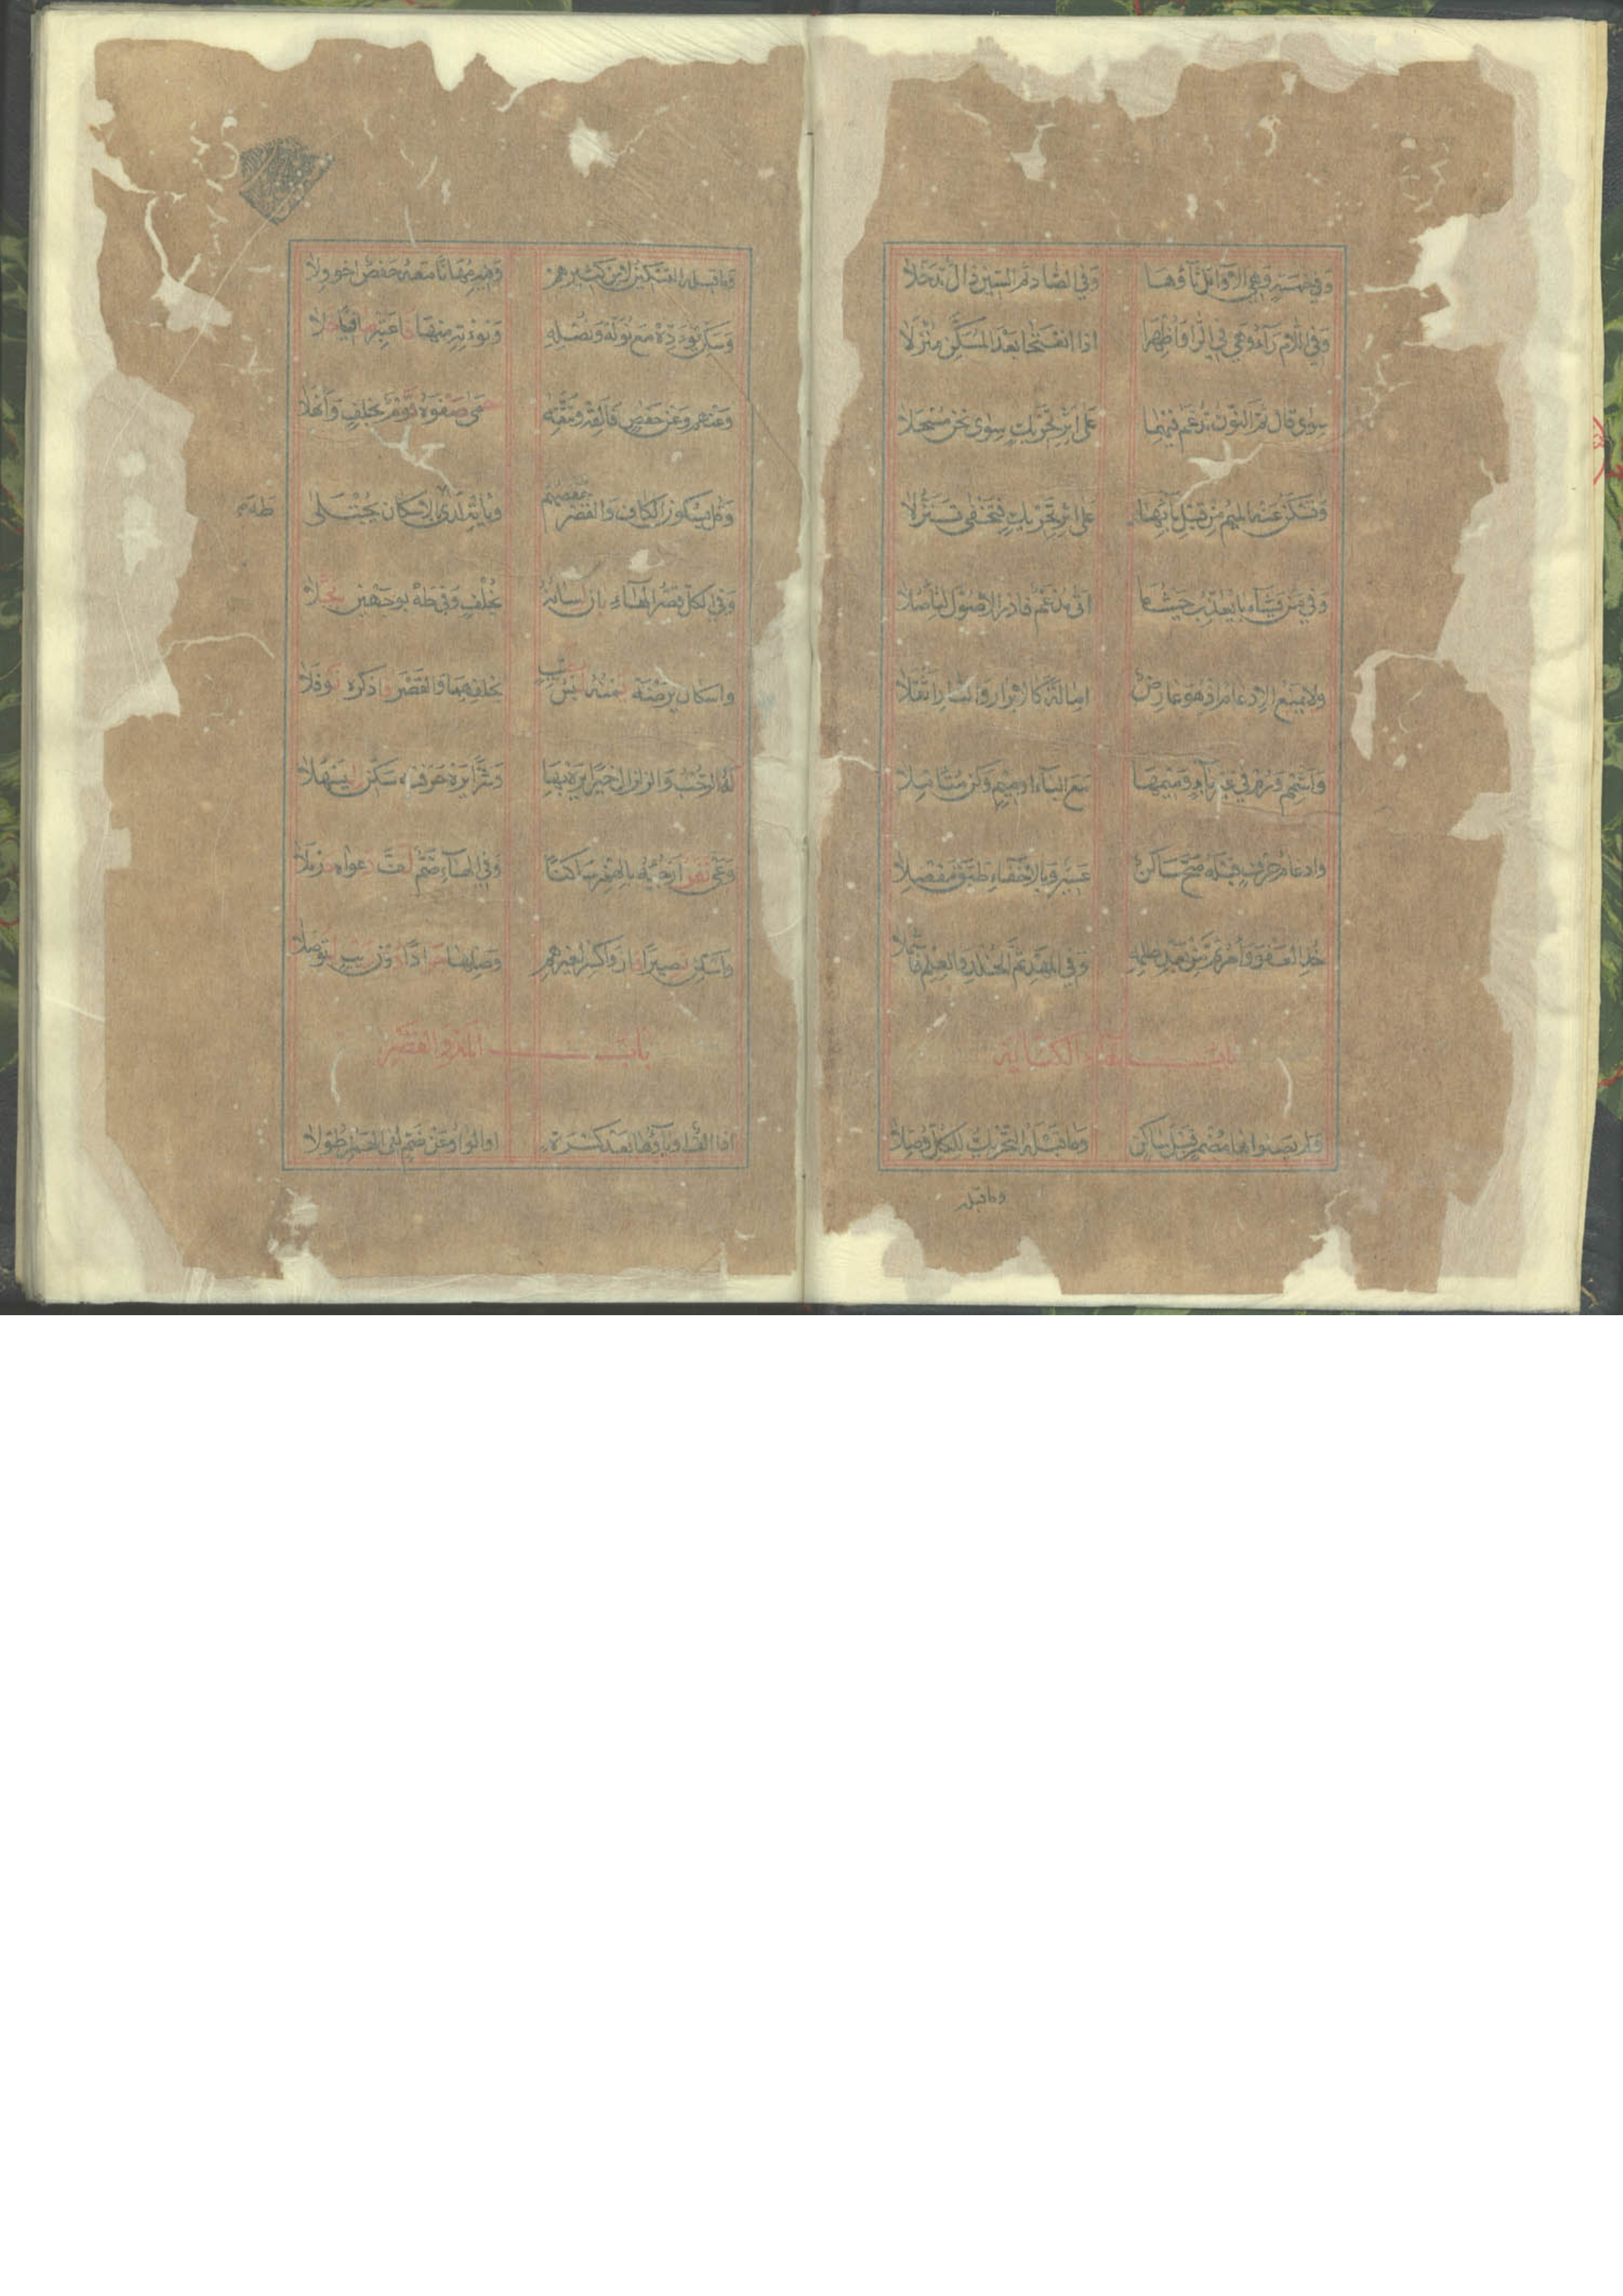 وَفِي خَمْسَةٍ وَهِيَ الاَوَائِلُ ثَاؤُهَا وَفِي الصَّادِ ثُمَّ السِّينِ ذَالٌ تَدَخَّلاَ
وَفِي اللاَّمِ رَآءٌ وَهِيَ فِي الرَّا وَاُظْهِرَا اذا انْفَتَحَا بَعْدَ المُسَكَّنِ مُنْزَلاَ
سِوَى قَالَ ثُمَّ النُّونُ تُدْغَمُ فِيهِمَا عَلَى اثْرِ تَحْرِيكٍ سِوَى نَحْنُ مُسْجَلاَ
وَتُسْكَنُ عَنْهُ المِيمُ مِنْ قَبْلِ بَآئِهَا عَلَى اثْرِ تَحْرِيكٍ فَتَخْفَى تَنَزُّلاَ
وَفِي مَنْ يَشَآءُ بَا يُعَذِّبُ حَيْثُمَا اتَى مُدْغَمٌ فَادْرِ الاُصُولَ لِتَأْصُلاَ
ولا يمنع الاِدغام اذ هُوَ عَارِضٌ امَالَةَ كَالاَبْرَارِ وَالنَّارِ اثْقَلاَ
وَاَشْمِمْ وَرُمْ فِي غَيْرِ بَآءٍ وَمِيمِهَا مَعَ البَآءِ او مِيمٍ وَكُنْ مُتَأَمِّلاَ
وادغام حَرْفٍ قَبْلَهُ صَحَّ سَاكِنٌ عَسِيرٌ وَبِالاِخْفَآءِ طَبَّقَ مَفْصِلاَ
خُذِ العَفْوَ وَأْمُرْ ثُمَّ مِنْ بَعْدِ ظُلْمِهِ وَفِي المَهْدِ ثُمَّ الخُلْدِ وَالعِلْمِ فَاشْمُلاَ
بَابُ هَآءِ الكنَايَة
وَلَمْ يَصِلُوا هَا مُضْمَرٍ قَبْلَ سَاكِنٍ وَمَا قَبْلَهُ التَّحْرِيكُ لِلْكُلِّ وُصِّلاَ
وما قبله
وَمَا قبله التَّسْكِينُ لاِبْنِ كَثِيرِهِمْ وَفِيهِ مُهَانًا مَعْهُ حَفْصٌ اخو ولاَ
وَسَكِّنْ يُؤَدِّهْ مَعْ نُوَلِّهْ وَنُصْلِهِ وَنُؤْتِهِ مِنْهَا فَاعْتَبِرْ صَافِيًا حَلاَ
وَعَنْهُمْ وَعَنْ حَفْصٍ فَأَلْقِهْ وَيَتَّقِهْ حَمَى صَفْوَهُ قَوْمٌ بِخُلْفٍ وَاَنْهَلاَ
وَقُلْ بِسُكُونِ القَافِ وَالقَصْرِ حَفْصُهُمْ وَيَأْتِهْ لَدَى الاِسْكَانِ يُجْتَلَى
طه
وَفِي الكُلِّ قَصْرُ الهَآءِ بَانَ لِسَانُهُ بِخُلْفٍ وَفِي طهَ بِوَجْهَيْنِ بُجِّلاَ
واسكان يَرْضَهُ يُمْنُهُ لُبْسُ طَيِّبٍ بِخُلْفِهِمَا وَالقَصْرَ فَاذْكُرْهُ نَوْفَلاَ
لَهُ الرُّحْبُ وَالزلزال خَيْرًا يَرَهْ بِهَا وَشَرًّا يَرَهْ حَرْفَيْهِ سَكِّنْ لِيَسْهُلاَ
وَعَى نَفَرٌ اَرْجِئْهُ بِالهَمْزِ سَاكِنًا وَفِي الهَآءِ ضَمٌّ لَفَّ دَعْوَاهُ حَرْمَلاَ
وَاَسْكِنْ نَصِيرًا فَازَ وَاكْسِرْ لِغَيْرِهِمْ وَصِلْهَا جَوَادًا دُونَ رَيْبٍ لِتُوصَلاَ
بَابُ المَدِّ وَالقَصْرِ
اذَا اَلِفٌ او يَآؤُهَا بَعْدَ كَسْرَةٍ او الوَاوُ عَنْ ضَمٍّ لَقِي الهَمْزَ طُوِّلاَ